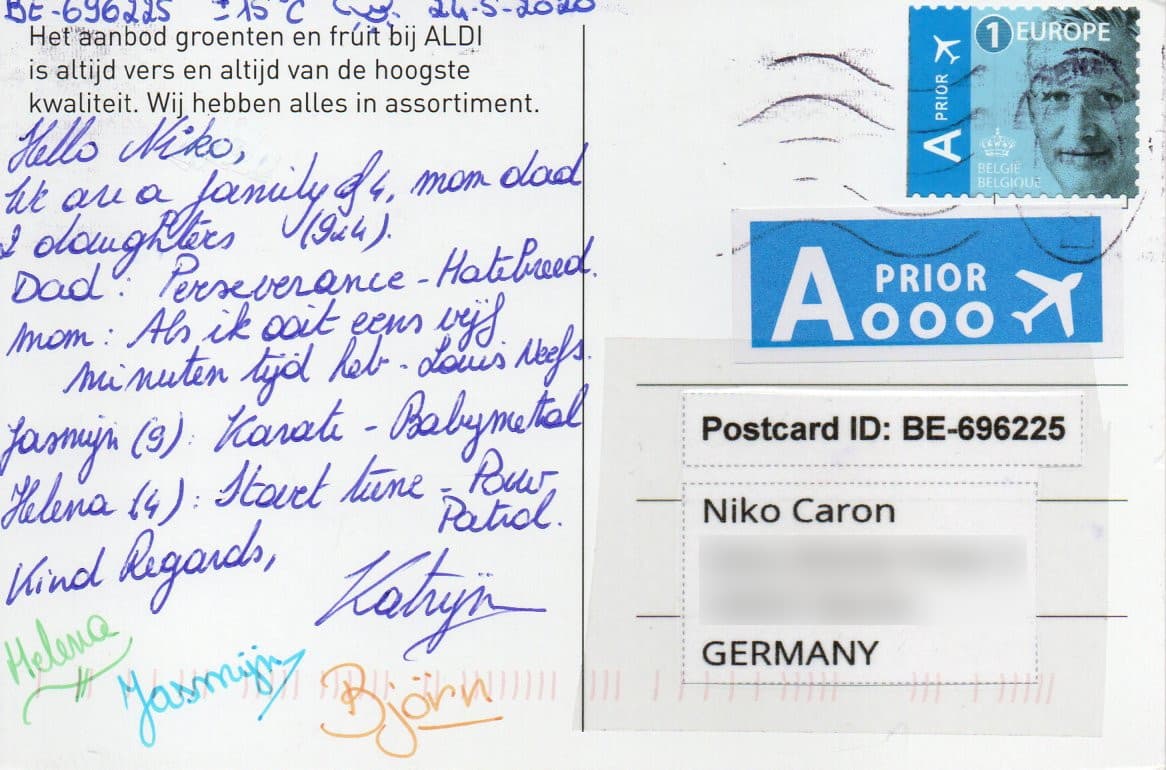 BE-696225 ±15°C 24-5-2020
Het aanbod groenten en fruit bij ALDI
is altijd vers en altijd van de hoogste
kwaliteit. Wij hebben alles in assortiment.
Hello Niko,
We are a family of 4, mom dad
2 daughters (9x4).
Dad: Perseverance - Hatebreed.
Mom: Als ik ooit eens vijf
minuten tijd heb - Louis Neefs.
Jasmijn (9): Karate - Babymetal
Helena (4): Start tune - Pauw
Patrol.
Kind Regards,
Katrijn
Helena
Jasmijn
Björn
A PRIOR
1 EUROPE
BELGIË
BELGIQUE
A PRIOR
000
Postcard ID: BE-696225
Niko Caron
GERMANY